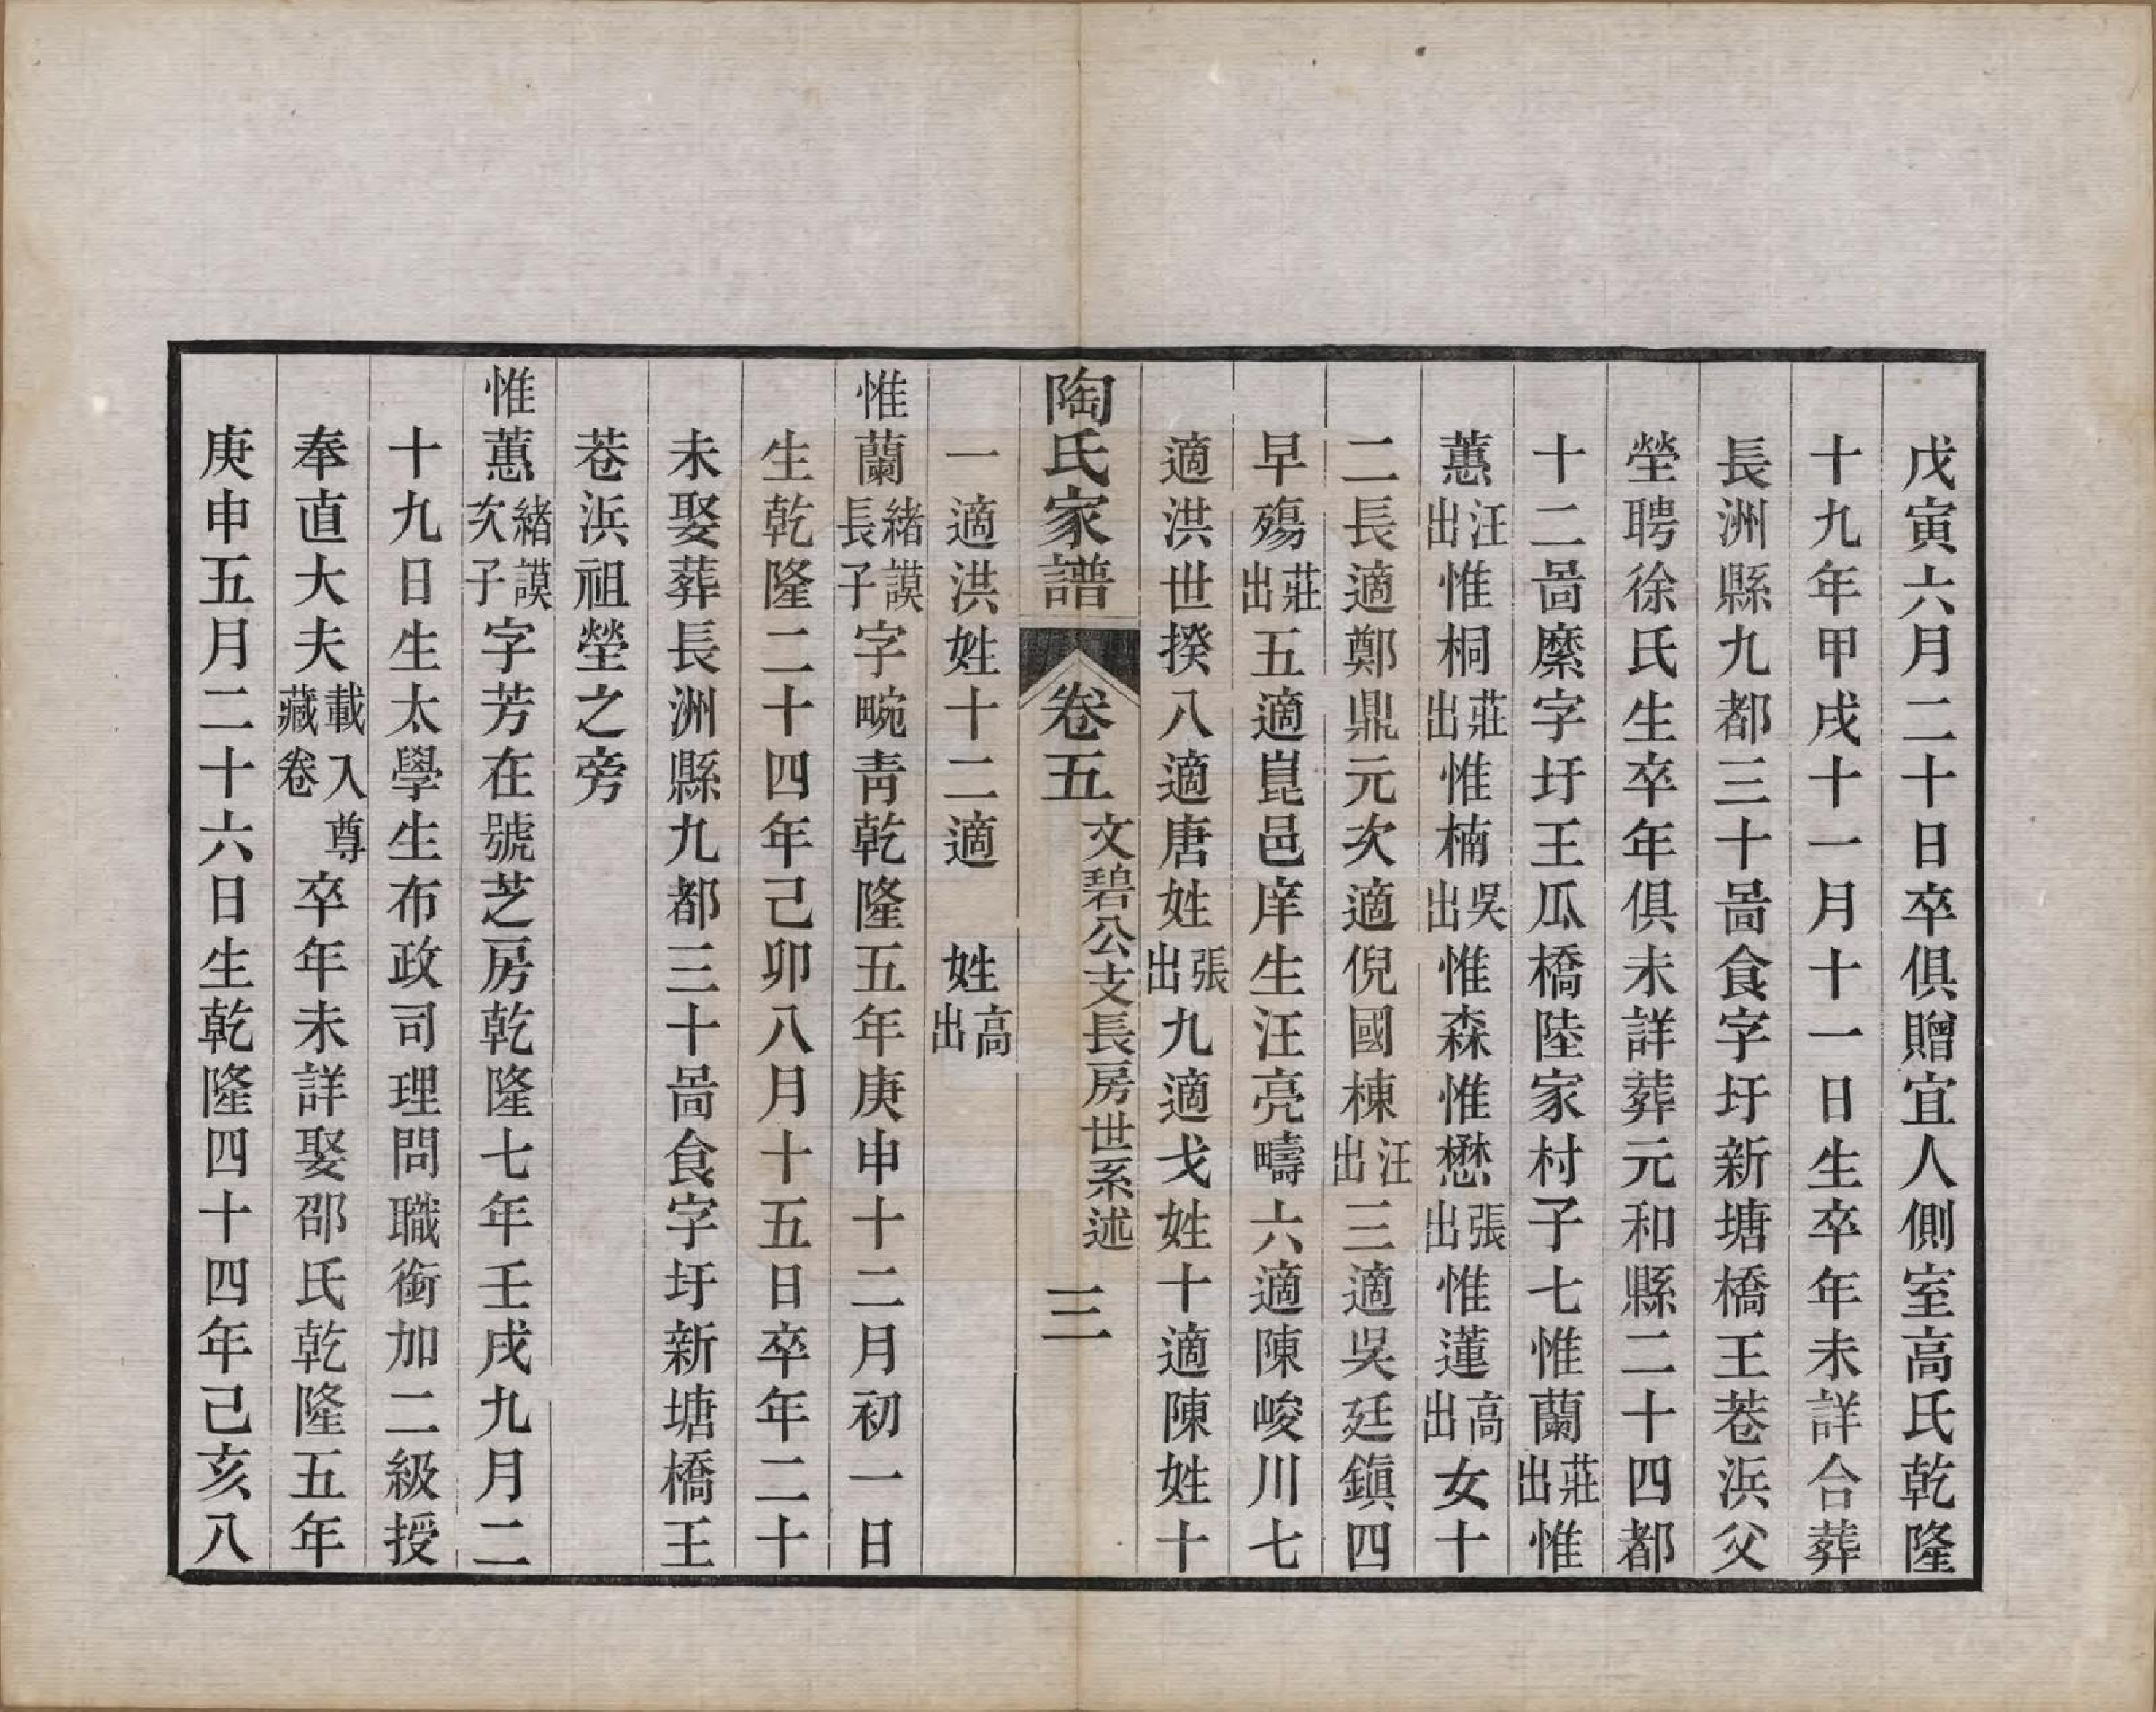 戊寅六月二十日卒俱贈宜人側室高氏乾隆
十九年甲戌十一月十一日生卒年未詳合葬
長洲縣九都三十啚食字圩新塘橋王巷浜父
塋聘徐氏生卒年俱未詳葬元和縣二十四都
十二啚縻字圩王瓜橋陸家村子七惟蘭莊出惟
蕙汪出惟桐莊出惟楠吳出惟森惟懋張出惟蓮高出女十
二長適鄭鼎元次適倪國棟汪出三適吳廷鎭四
早殤莊出五適崑邑庠生汪亮疇六適陳峻川七
適洪世揆八適唐姓張出九適戈姓十適陳姓十
一適洪姓十二適　姓高出
陶氏家譜　卷五　文碧公支長房世系述　三
惟蘭緒謨長子字畹靑乾隆五年庚申十二月初一日
生乾隆二十四年己卯八月十五日卒年二十
未娶葬長洲縣九都三十啚食字圩新塘橋王
巷浜祖塋之旁
惟蕙緒謨次子字芳在號芝房乾隆七年壬戌九月二
十九日生太學生布政司理問職銜加二級授
奉直大夫載入尊藏卷卒年未詳娶邵氏乾隆五年
庚申五月二十六日生乾隆四十四年己亥八